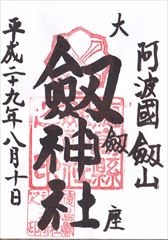 阿波國劔山
大劔座
劔神社
平成二十九年八月十日